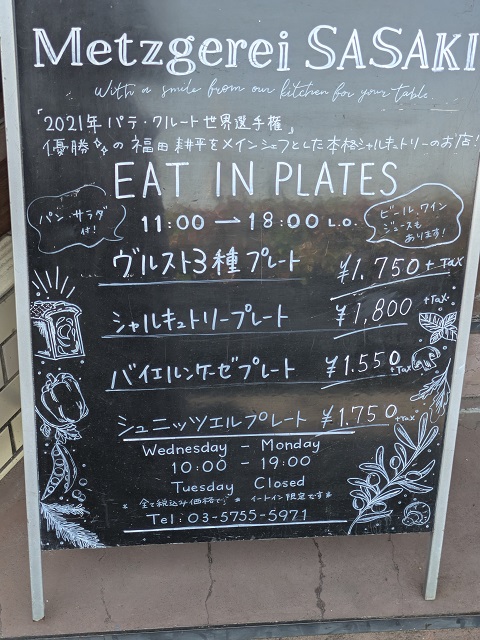 Metzgerei SASAKI
with a smile from our kitchen for your table.
「2021年 パテ・クルート世界選手権」
優勝の福田耕平をメインシェフとした本格シャルキュトリーのお店!
EAT IN PLATES
パン・サラダ
付!
11:00 — 18:00 L.O.
ビール、ワイン
ジュースも
あります!
ヴルスト3種プレート ¥1,750 +Tax
シャルキュトリープレート ¥1,800 +Tax
バイエルンケーゼプレート ¥1,550 +Tax
シュニッツェルプレート ¥1,750 +Tax
Wednesday - Monday
10:00 - 19:00
Tuesday Closed
* 全て税込み価格で * イートイン限定です*
Tel: 03-5755-5971